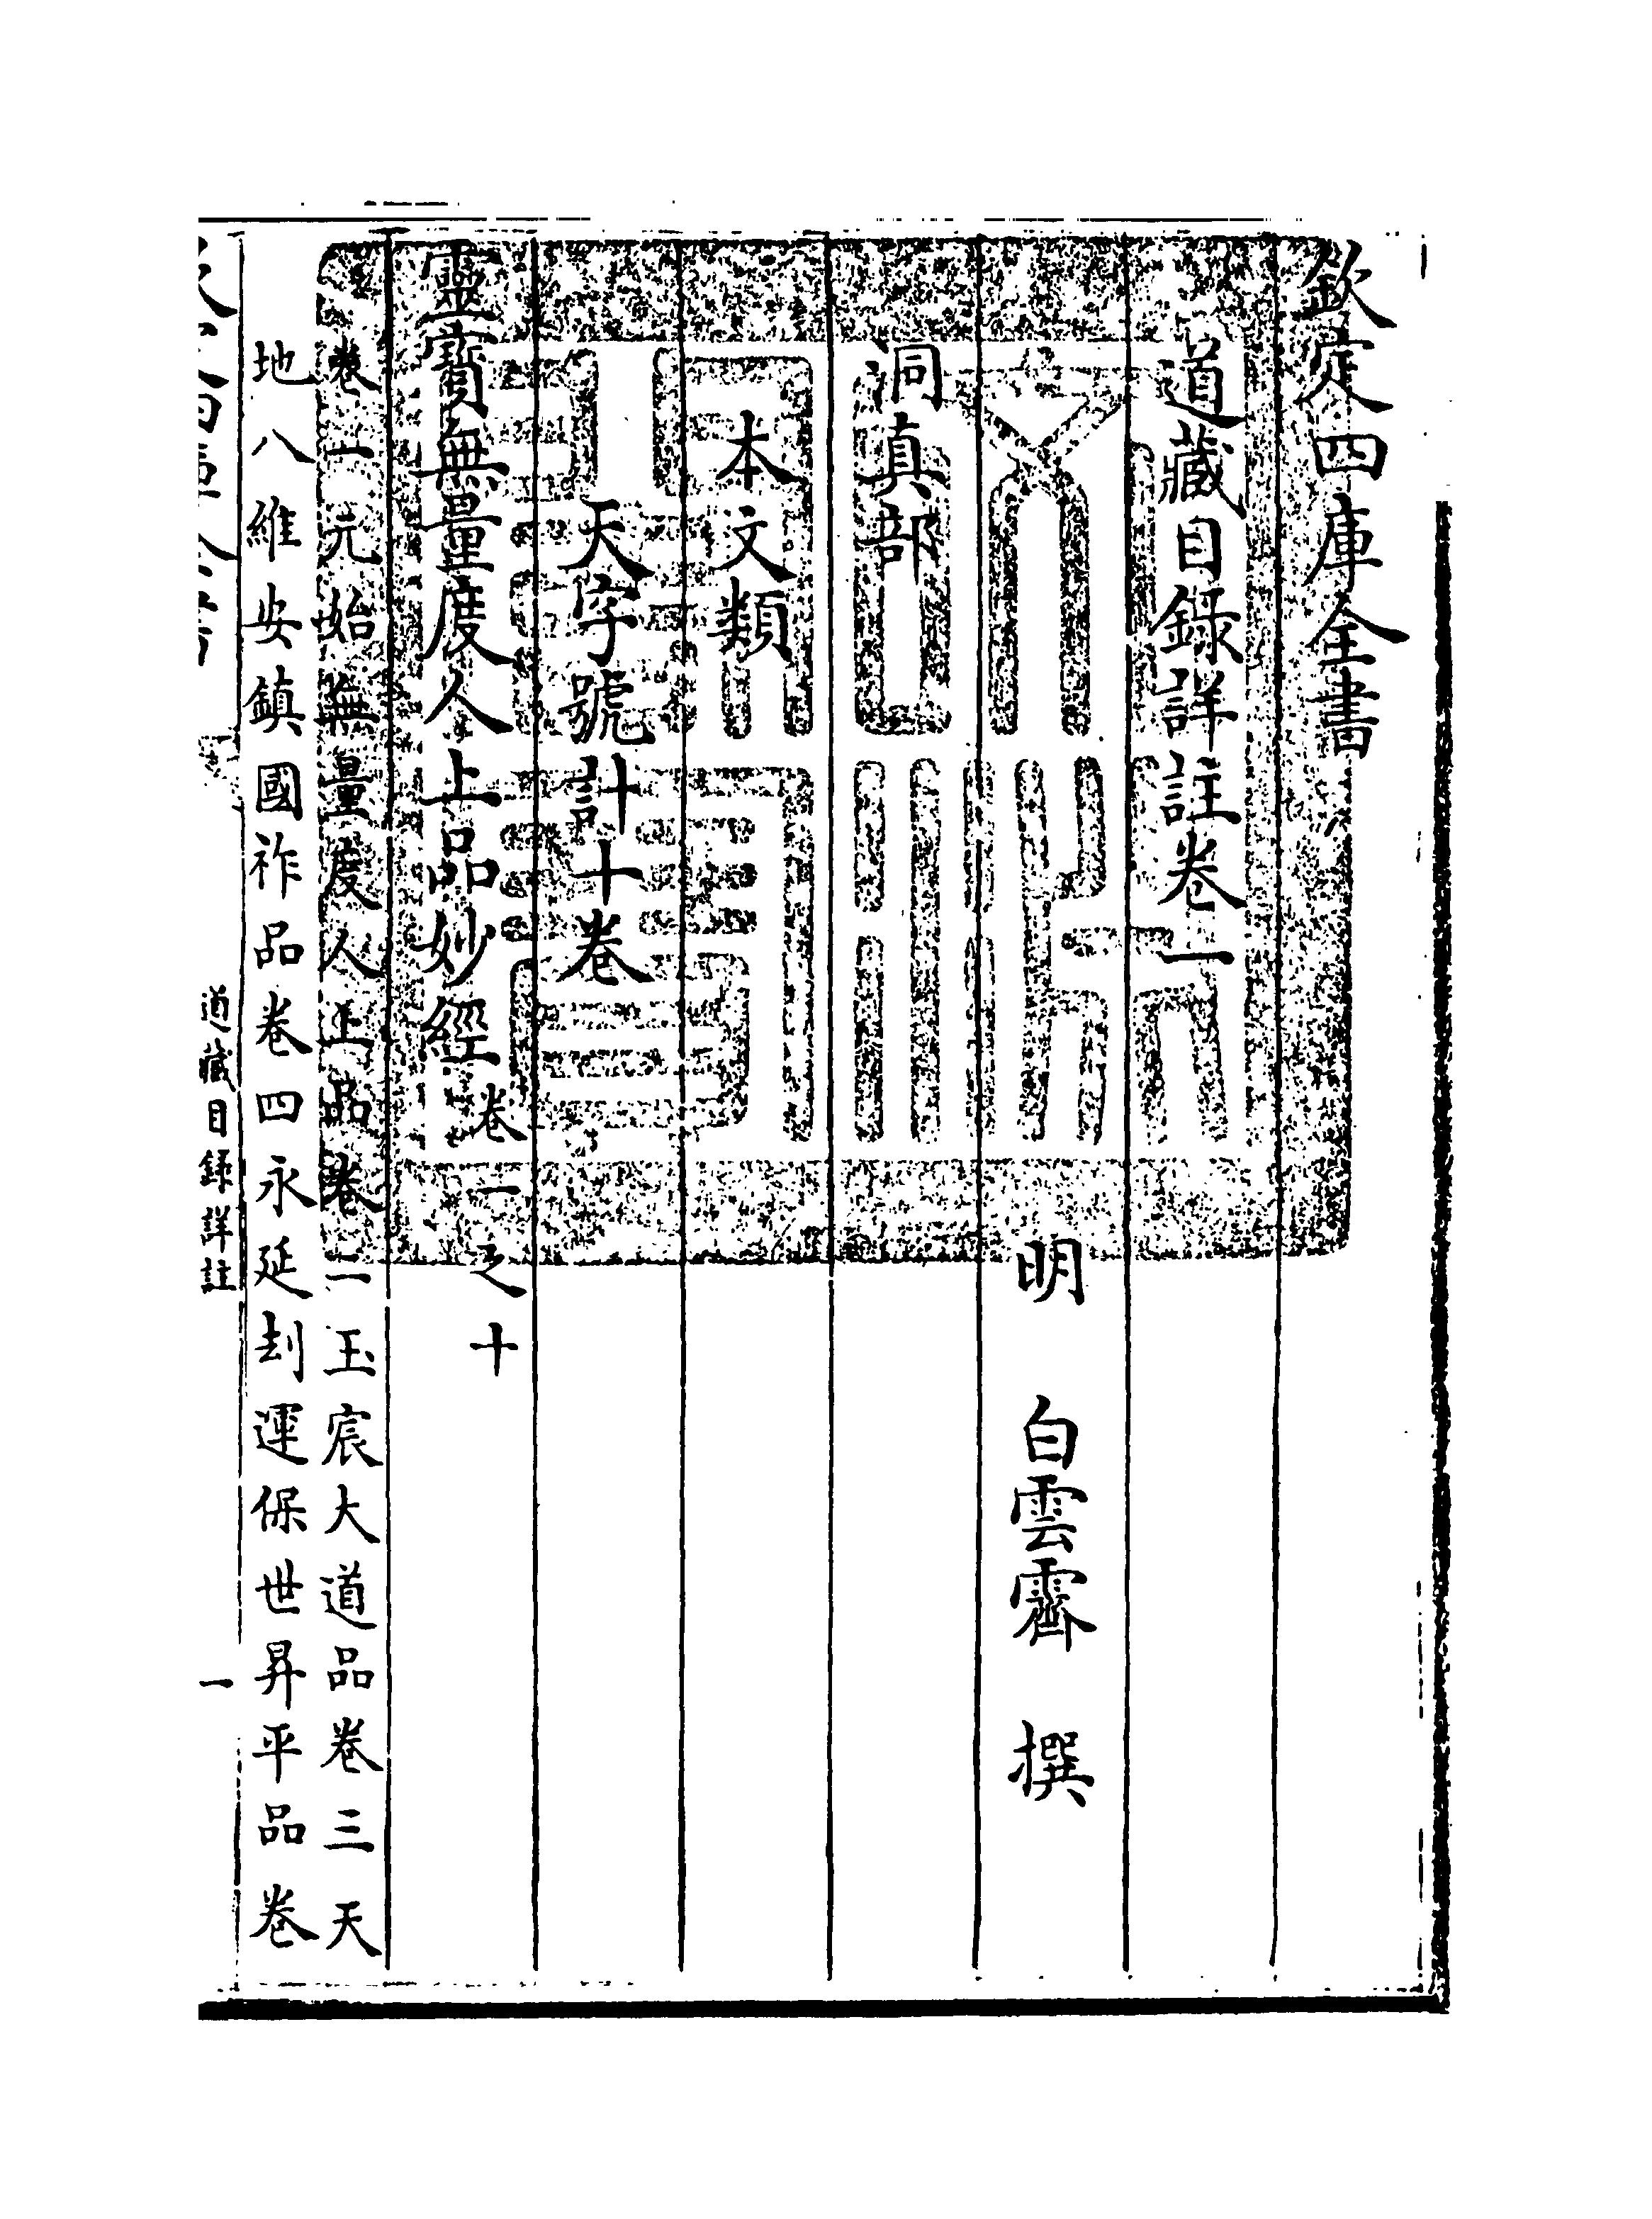 欽定四庫全書
道藏目錄詳註卷一
明 白雲霽 撰
洞真部
本文類
天字號計十卷
靈寶無量度人上品妙經卷一之十
卷一元始無量度人上品卷二玉宸大道品卷三天
地八維安鎮國祚品卷四永延刦運保世昇平品卷
道藏目錄詳註
一